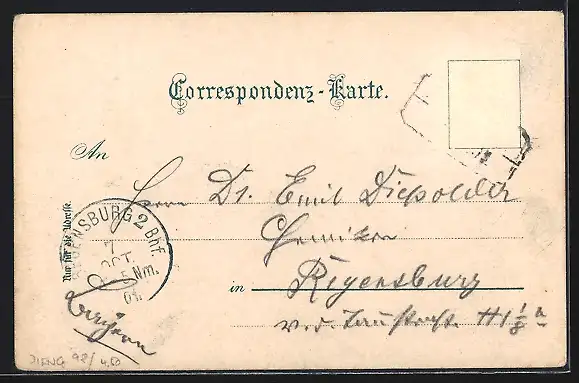 Correspondenz-Karte.
An
Herrn Dr. Emil Diepolder
Chemiker
in Regensburg
H 1 1/2
Nur für die Adresse.
REGENSBURG 2 Bhf.
7
OCT.
5 Nm.
01.
Bayern
98/